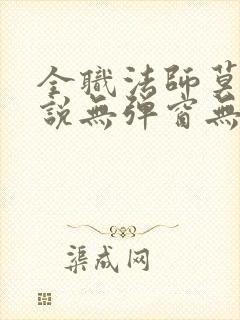 全職法師莫
說無彈窗無
渠成网